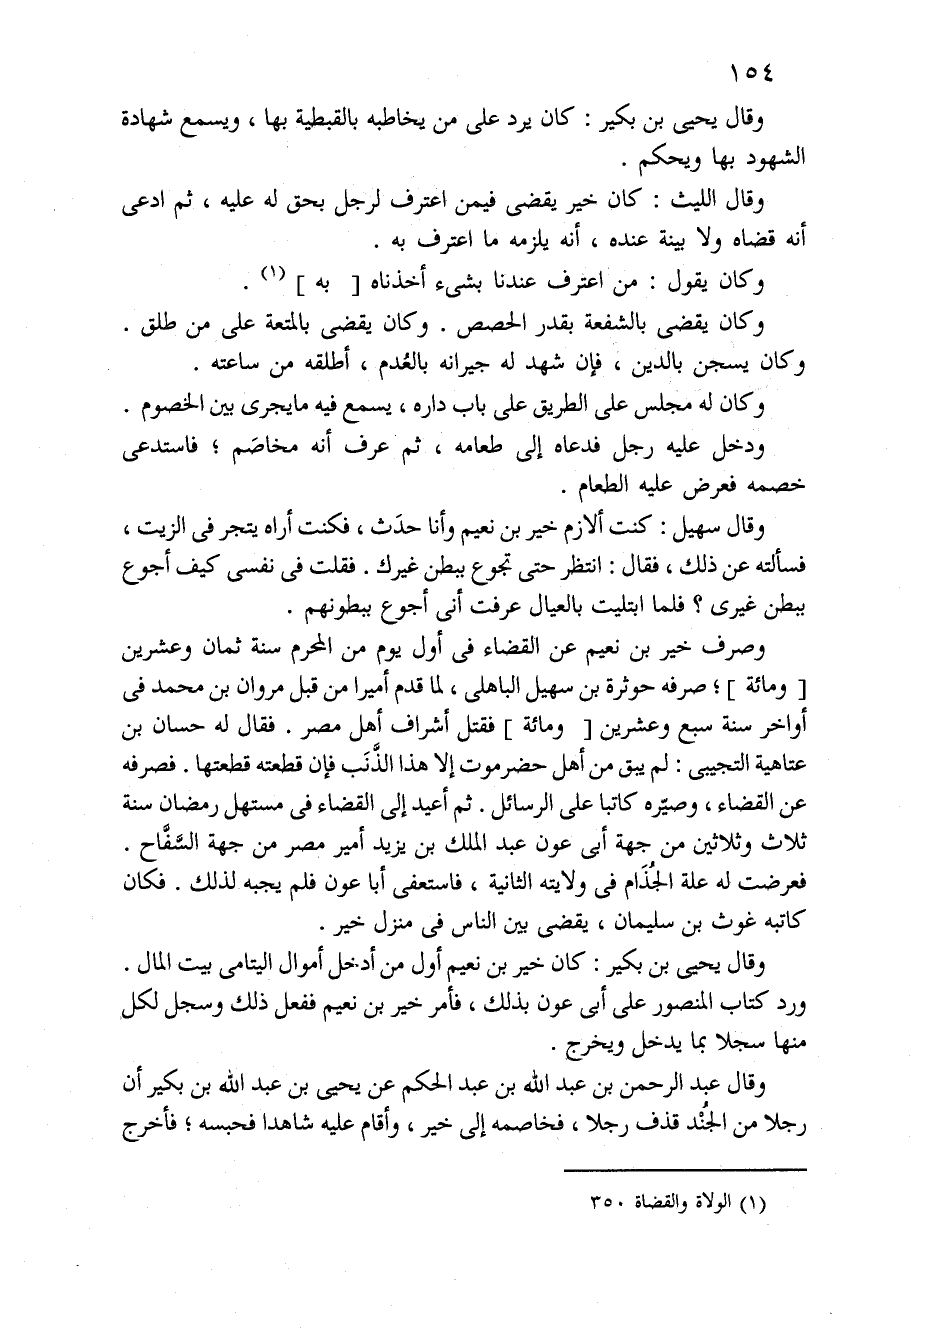 ١٥٤
وقال يحيى بن بكير : كان يرد على من يخاطبه بالقبطية بها ، ويسمع شهادة
الشهود بها ويحكم .
وقال الليث : كان خير يقضى فيمن اعترف لرجل بحق له عليه ، ثم ادعى
أنه قضاه ولا بينة عنده ، أنه يلزمه ما اعترف به .
وكان يقول : من اعترف عندنا بشىء أخذناه [ به ] (١) .
وكان يقضى بالشفعة بقدر الحصص . وكان يقضى بالمتعة على من طلق .
وكان يسجن بالدين ، فإن شهد له جيرانه بالعُدم ، أطلقه من ساعته .
وكان له مجلس على الطريق على باب داره ، يسمع فيه مايجرى بين الخصوم .
ودخل عليه رجل فدعاه إلى طعامه ، ثم عرف أنه مخاصَم ؛ فاستدعى
خصمه فعرض عليه الطعام .
وقال سهيل : كنت ألازم خير بن نعيم وأنا حدَث ، فكنت أراه يتجر فى الزيت ،
فسألته عن ذلك ، فقال : انتظر حتى تجوع ببطن غيرك . فقلت فى نفسى كيف أجوع
ببطن غيرى ؟ فلما ابتليت بالعيال عرفت أنى أجوع ببطونهم .
وصرف خير بن نعيم عن القضاء فى أول يوم من المحرم سنة ثمان وعشرين
[ ومائة ] ؛ صرفه حوثرة بن سهيل الباهلى ، لما قدم أميرا من قبل مروان بن محمد فى
أواخر سنة سبع وعشرين [ ومائة ] فقتل أشراف أهل مصر . فقال له حسان بن
عتاهية التجيبى : لم يبق من أهل حضرموت إلا هذا الذَّنَب فإن قطعته قطعتها . فصرفه
عن القضاء ، وصيّره كاتبا على الرسائل . ثم أعيد إلى القضاء فى مستهل رمضان سنة
ثلاث وثلاثين من جهة أبى عون عبد الملك بن يزيد أمير مصر من جهة السَّفَّاح .
فعرضت له علة الجُذَام فى ولايته الثانية ، فاستعفى أبا عون فلم يجبه لذلك . فكان
كاتبه غوث بن سليمان ، يقضى بين الناس فى منزل خير .
وقال يحيى بن بكير : كان خير بن نعيم أول من أدخل أموال اليتامى بيت المال .
ورد كتاب المنصور على أبى عون بذلك ، فأمر خير بن نعيم ففعل ذلك وسجل لكل
منها سجلا بما يدخل ويخرج .
وقال عبد الرحمن بن عبد الله بن عبد الحكم عن يحيى بن عبد الله بن بكير أن
رجلا من الجُنْد قذف رجلا ، فخاصمه إلى خير ، وأقام عليه شاهدا فحبسه ؛ فأخرج
(١) الولاة والقضاة ٣٥٠